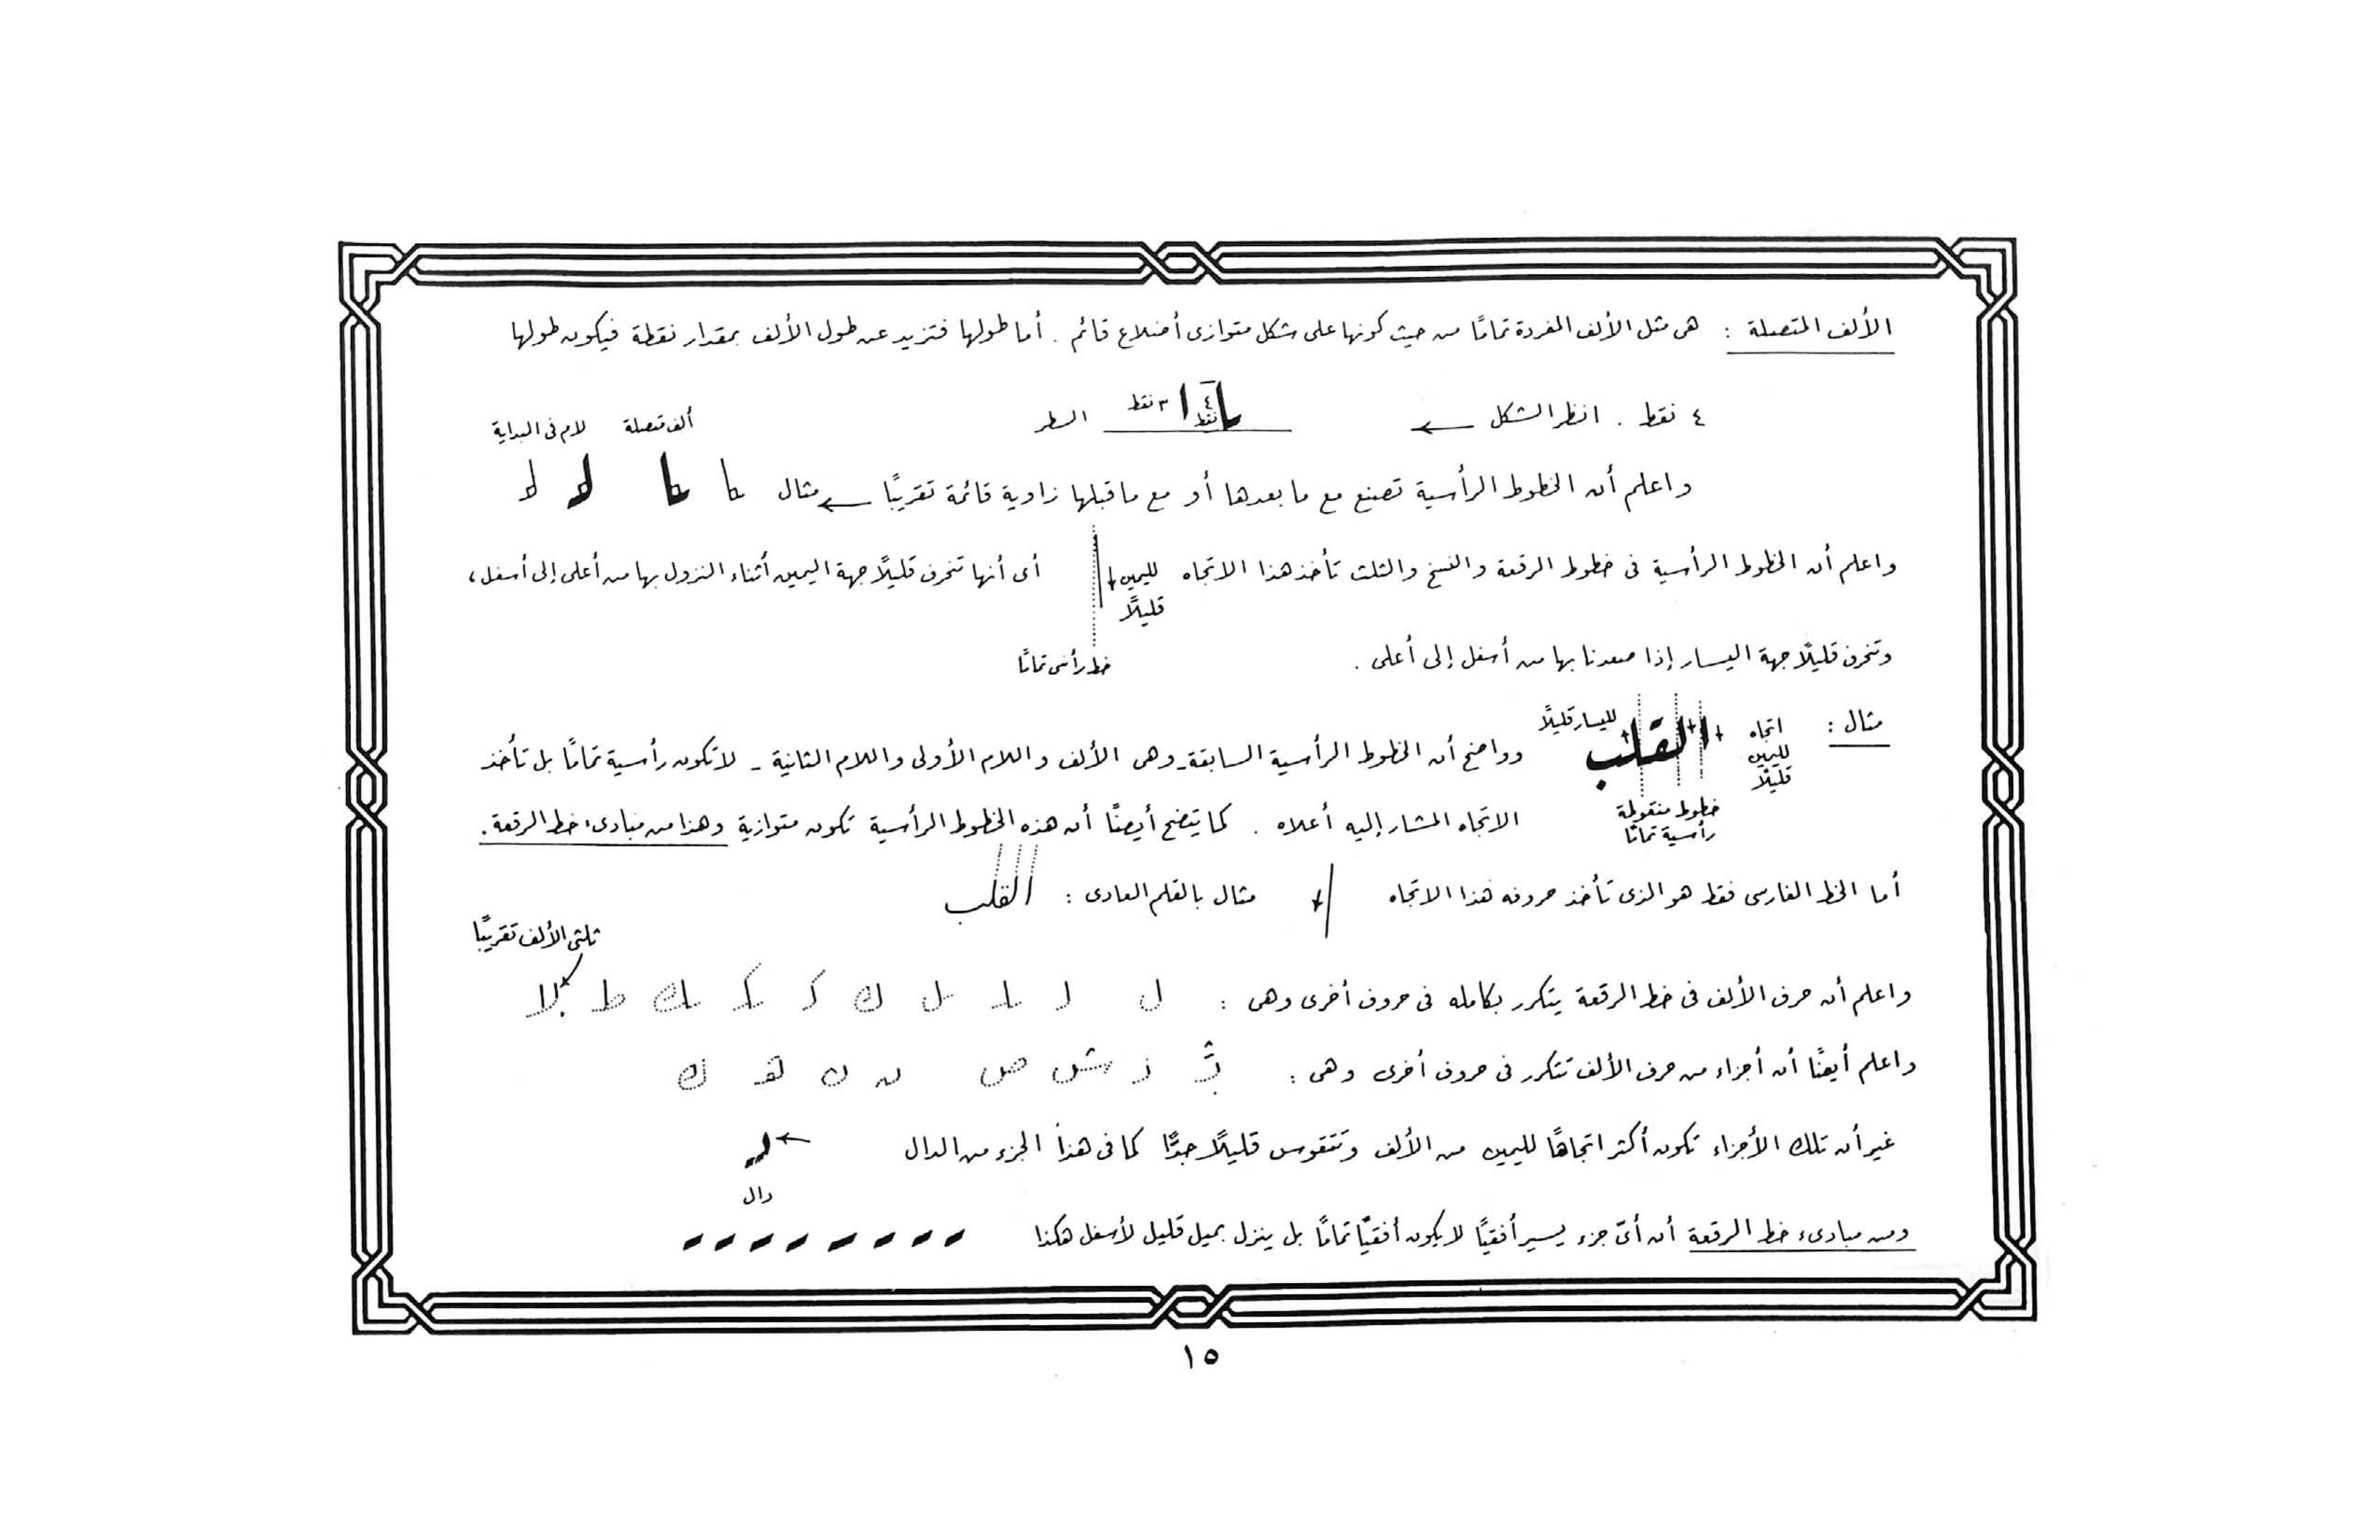 الألف المتصلة : هى مثل الألف المفردة تمامًا من حيث كونها على شكل متوازى أضلاع قائم . أما طولها فتزيد عن طول الألف بمقدار نقطة فيكون طولها
٤ نقط . انظر الشكل ← ٤ نقط ٣ نقط السطر
ألف متصلة لام فى البداية
واعلم أن الخطوط الرأسية تصنع مع ما بعدها أو مع ما قبلها زاوية قائمة تقريبًا ← مثال
واعلم أن الخطوط الرأسية فى خطوط الرقعة والنسخ والثلث تأخذ هذا الاتجاه لليمين قليلًا أى أنها تنحرف قليلًا جهة اليمين أثناء النزول بها من أعلى إلى أسفل ،
خط رأسى تمامًا
وتنحرف قليلًا جهة اليسار إذا صعدنا بها من أسفل إلى أعلى .
مثال : اتجاه لليمين قليلًا القلب لليسار قليلًا
خطوط منقوطة رأسية تمامًا
وواضح أن الخطوط الرأسية السابقة - وهى الألف واللام الأولى واللام الثانية - لا تكون رأسية تمامًا بل تأخذ
الاتجاه المشار إليه أعلاه . كما يتضح أيضًا أن هذه الخطوط الرأسية تكون متوازية وهذا من مبادىء خط الرقعة .
أما الخط الفارسى فقط هو الذى تأخذ حروفه هذا الاتجاه مثال بالقلم العادى : القلب
ثلثى الألف تقريبًا
واعلم أن حرف الألف فى خط الرقعة يتكرر بكامله فى حروف أخرى وهى :
واعلم أيضًا أن أجزاء من حرف الألف تتكرر فى حروف أخرى وهى :
غير أن تلك الأجزاء تكون أكثر اتجاهًا لليمين من الألف وتتقوس قليلًا جدًّا كما فى هذا الجزء من الدال ←
دال
ومن مبادىء خط الرقعة أن أىّ جزء يسير أفقيًا لا يكون أفقيًّا تمامًا بل ينزل بميل قليل لأسفل هكذا
١٥